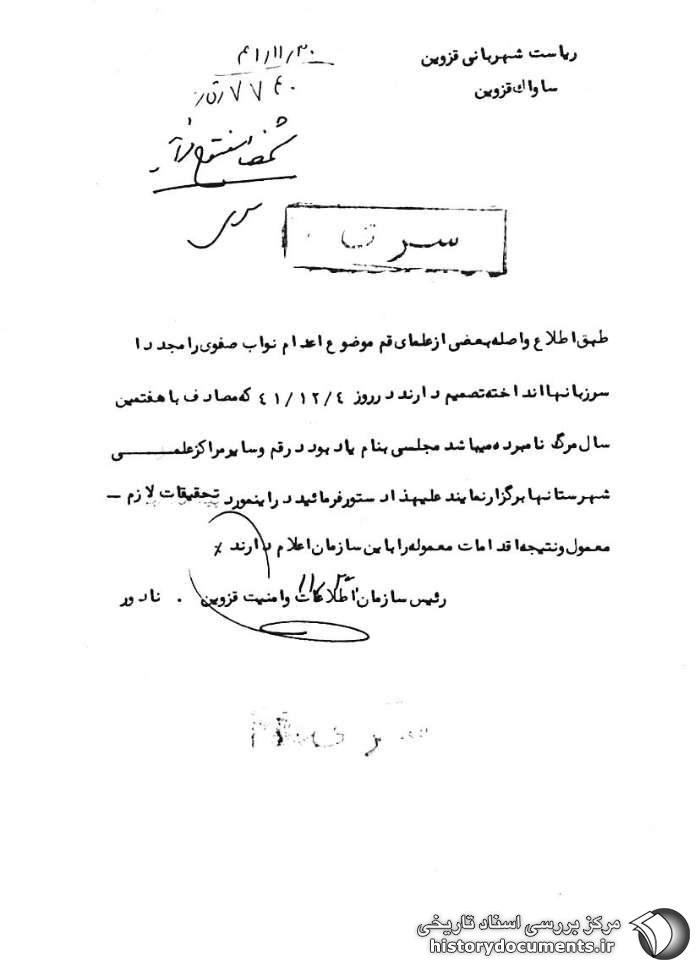 ریاست شهربانی قزوین
ساواک قزوین
۴۱/۱۱/۳۰
سری
طبق اطلاع واصله بعضی از علمای قم موضوع اعدام نواب صفوی را مجددا
سرزبانها انداخته تصمیم دارند در روز ۴۱/۱۲/۴ که مصادف با هفتمین
سال مرگ نامبرده میباشد مجلسی بنام یادبود در قم و سایر مراکز علمی
شهرستانها برگزار نمایند علیهذا دستور فرمائید در اینمورد تحقیقات لازم –
معمول و نتیجه اقدامات معموله را باین سازمان اعلام دارند ٪
رئیس سازمان اطلاعات و امنیت قزوین . نادور
سری
مرکز بررسی اسناد تاریخی
historydocuments.ir